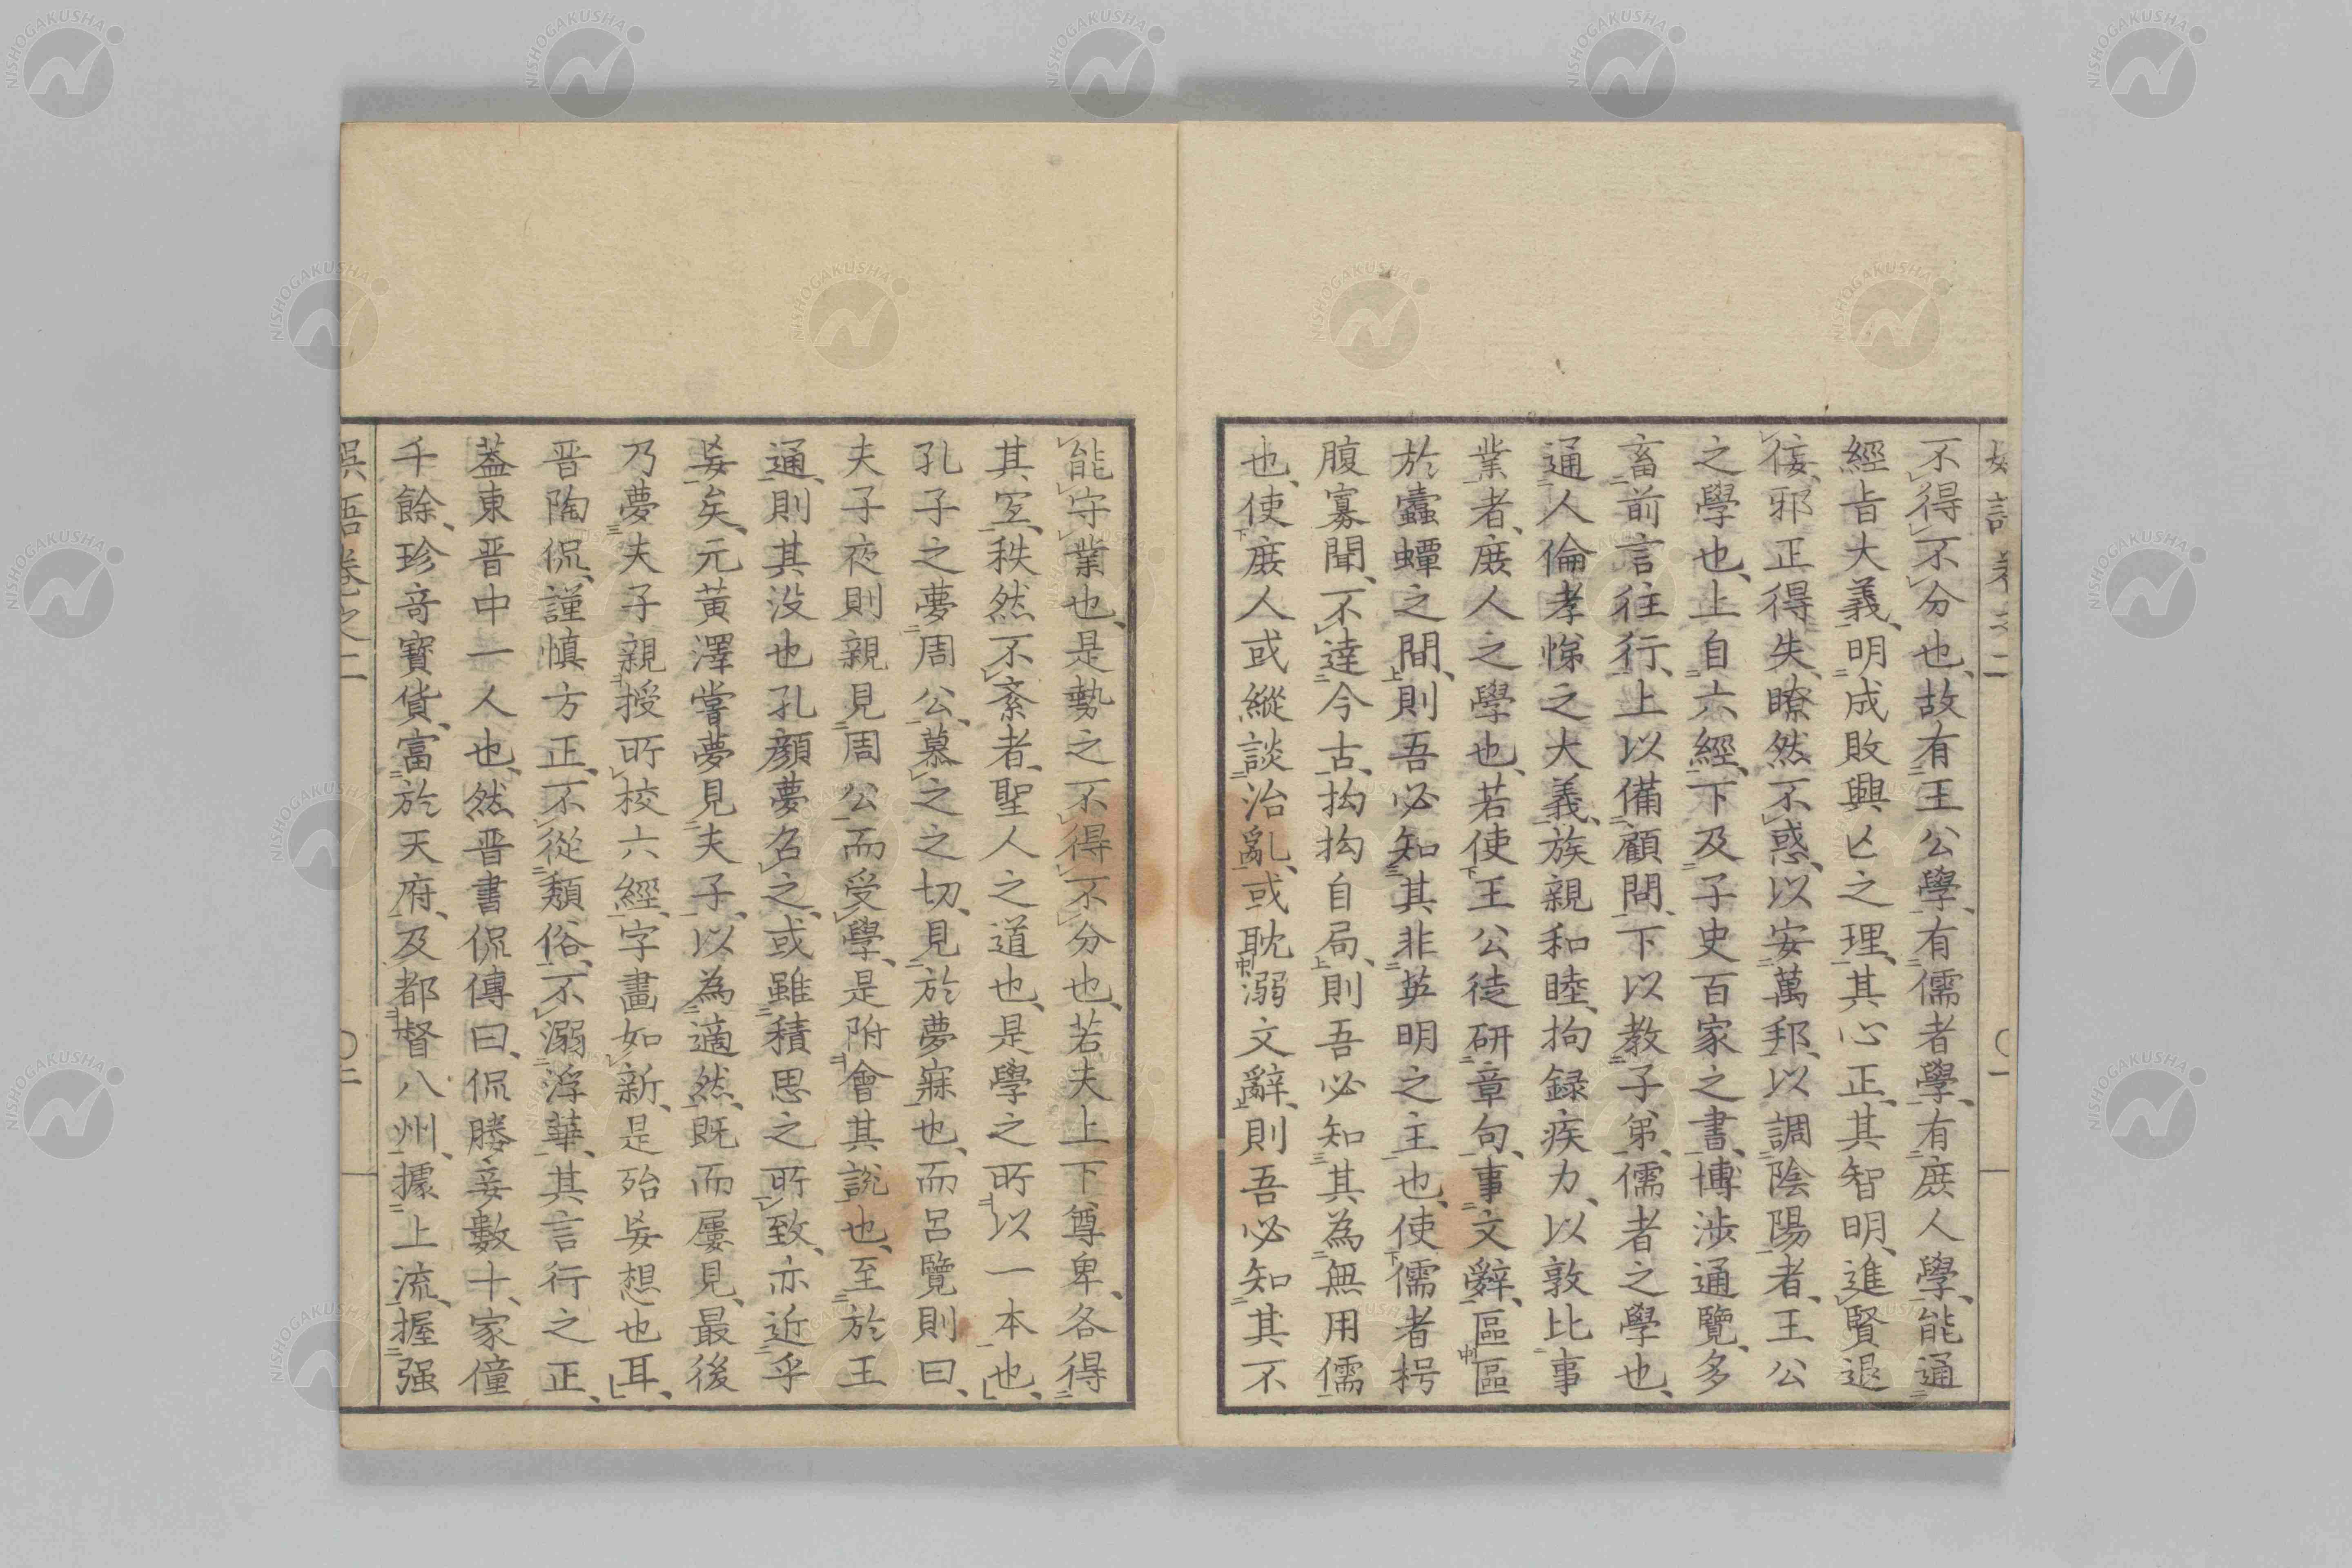 不得不分也、故有王公學、有儒者學、有庻人學、能通
經旨大義、明成敗興亾之理、其心正、其智明、進賢退
佞、邪正得失、瞭然不惑、以安萬邦、以調陰陽者、王公
之學也、上自六經、下及子史百家之書、博渉通覽、多
畜前言往行、上以備顧問、下以教子弟、儒者之學也、
通人倫孝悌之大義、族親和睦、拘録疾力、以敦比事
業者、庻人之學也、若使王公徒研章句、事文辭、區區
於蠹蟫之間、則吾必知其非英明之主也、使儒者枵
腹寡聞、不達今古、拘拘自局、則吾必知其為無用儒
也、使庻人或縱談治亂、或耽溺文辭、則吾必知其不
能守業也、是勢之不得不分也、若夫上下尊卑、各得
其宐、秩然不紊者、聖人之道也、是學之所以一本也、
孔子之夢周公、慕之之切、見於夢寐也、而呂覽則曰、
夫子夜則親見周公而受學、是附會其說也、至於王
通、則其没也孔顔夢召之、或雖積思之所致、亦近乎
妄矣、元黄澤嘗夢見夫子、以為適然、既而屢見、最後
乃夢夫子親授所校六經、字畫如新、是殆妄想也耳、
晋陶侃、謹慎方正、不從頽俗、不溺浮華、其言行之正、
葢東晋中一人也、然晋書侃傳曰、侃媵妾數十、家僮
千餘、珍竒寶貨、富於天府、及都督八州、據上流、握强
語卷之二